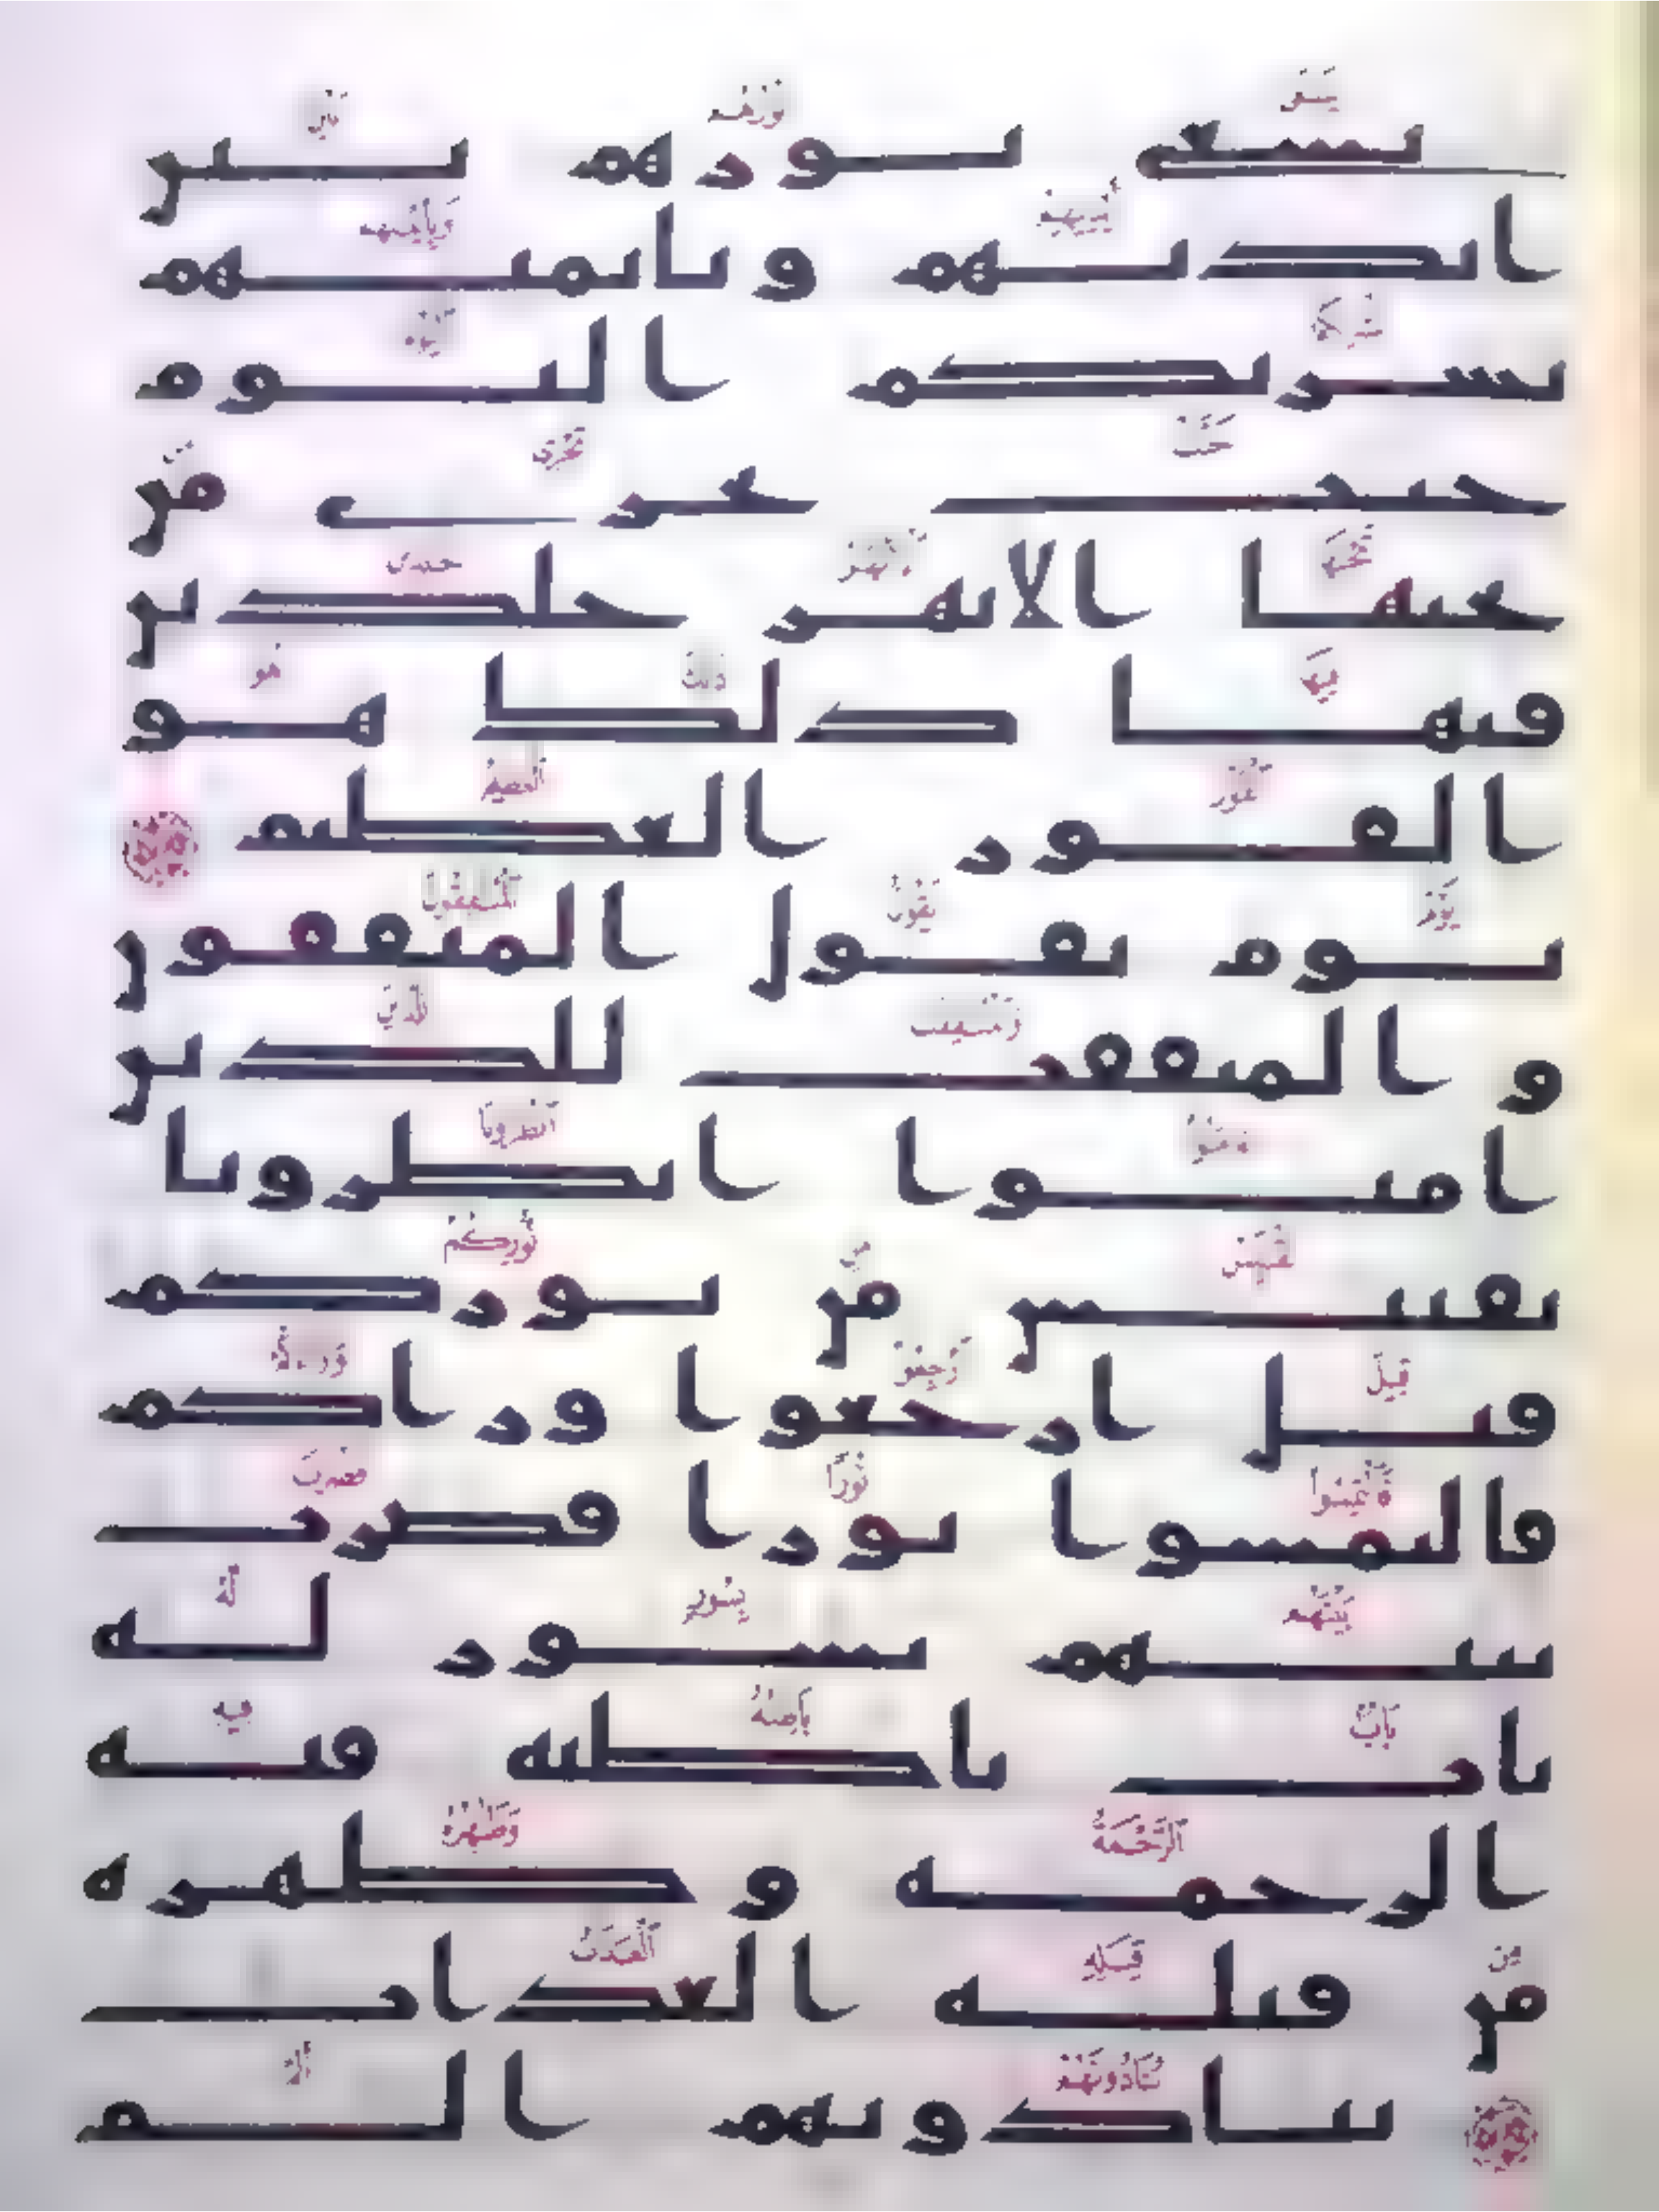 يسعى نورهم بين
ايديهم وبايمنهم
بشريكم اليوم
جنت تجرى من
تحتها الانهر خلدين
فيها ذلك هو
الفوز العظيم
يوم يقول المنفقون
و المنفقت للذين
امنوا انظرونا
نقتبس من نوركم
قيل ارجعوا وراكم
فالتمسوا نورا فضرب
بينهم بسور له
باب باطنه فيه
الرحمة وظهره
من قبله العذاب
ينادونهم الم